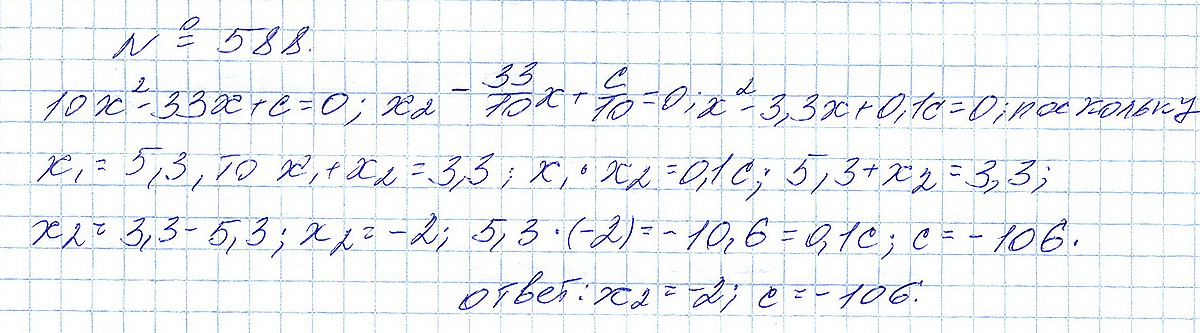 № 588.
10x² - 33x + c = 0; x2 - 33/10 x + c/10 = 0; x² - 3,3x + 0,1c = 0; поскольку
x₁ = 5,3, то x₁ + x₂ = 3,3; x₁ · x₂ = 0,1c; 5,3 + x₂ = 3,3;
x₂ = 3,3 - 5,3; x₂ = -2; 5,3 · (-2) = -10,6 = 0,1c; c = -106.
ответ: x₂ = -2; c = -106.